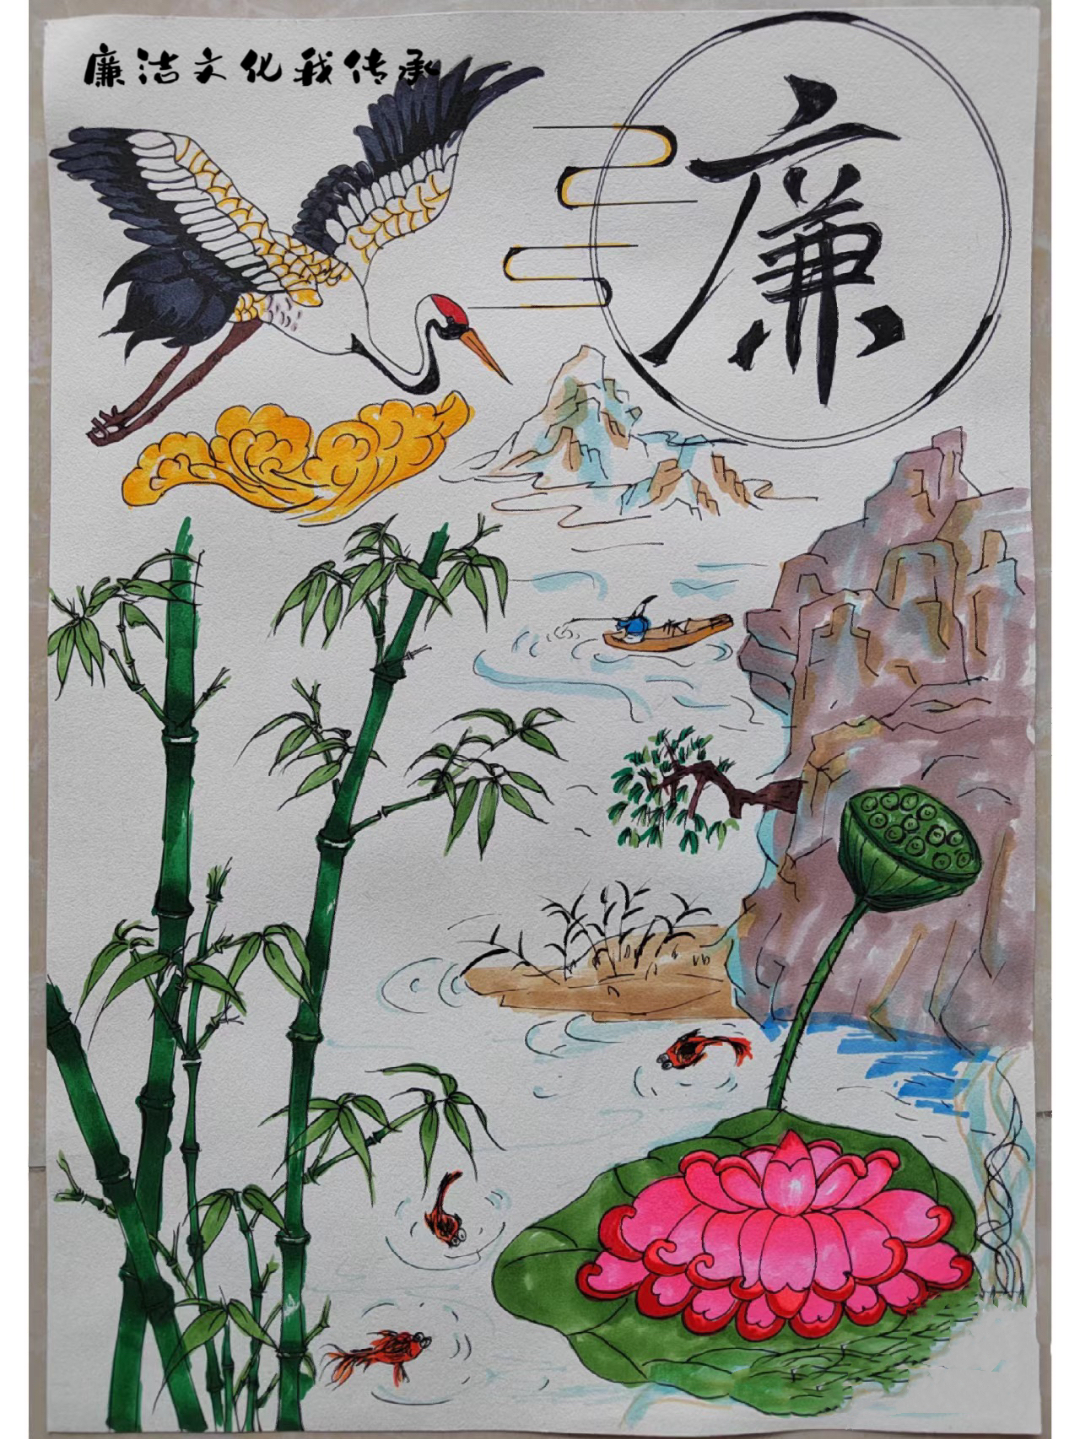 廉洁文化我传承
廉